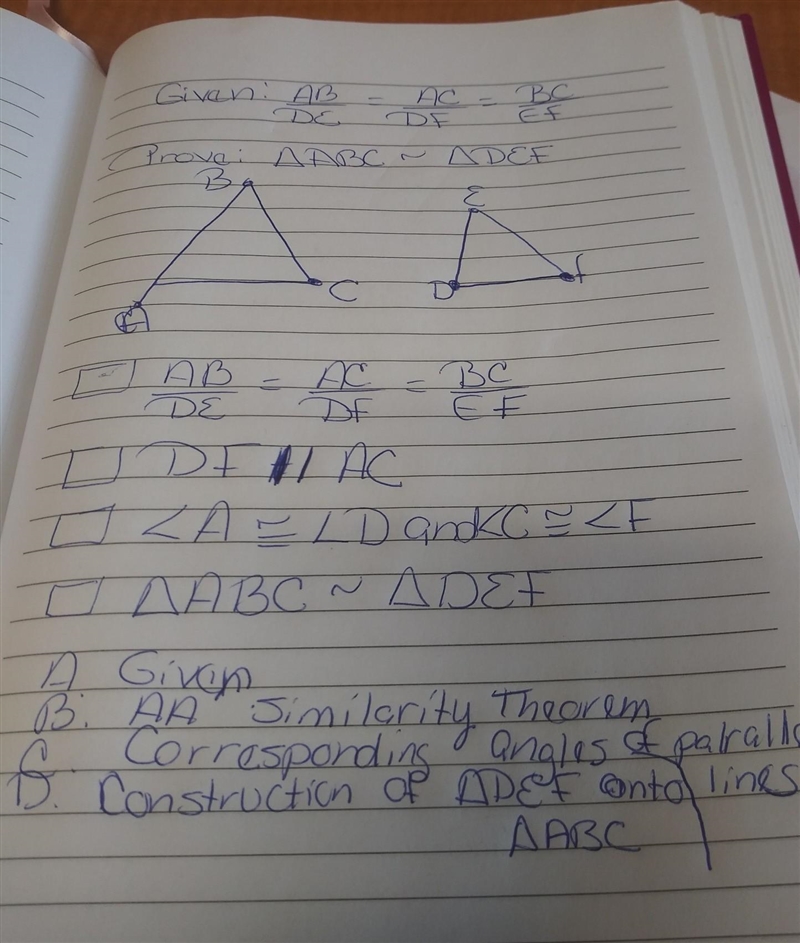 Given: AB/DE = AC/DF = BC/EF
Prove: ΔABC ~ ΔDEF
B
E
C
D
f
A
AB/DE = AC/DF = BC/EF
DF // AC
∠A ≅ ∠D and ∠C ≅ ∠F
ΔABC ~ ΔDEF
A Given
B. AA Similarity Theorem
C. Corresponding angles of paralls
D. Construction of ΔDEF onto lines
ΔABC